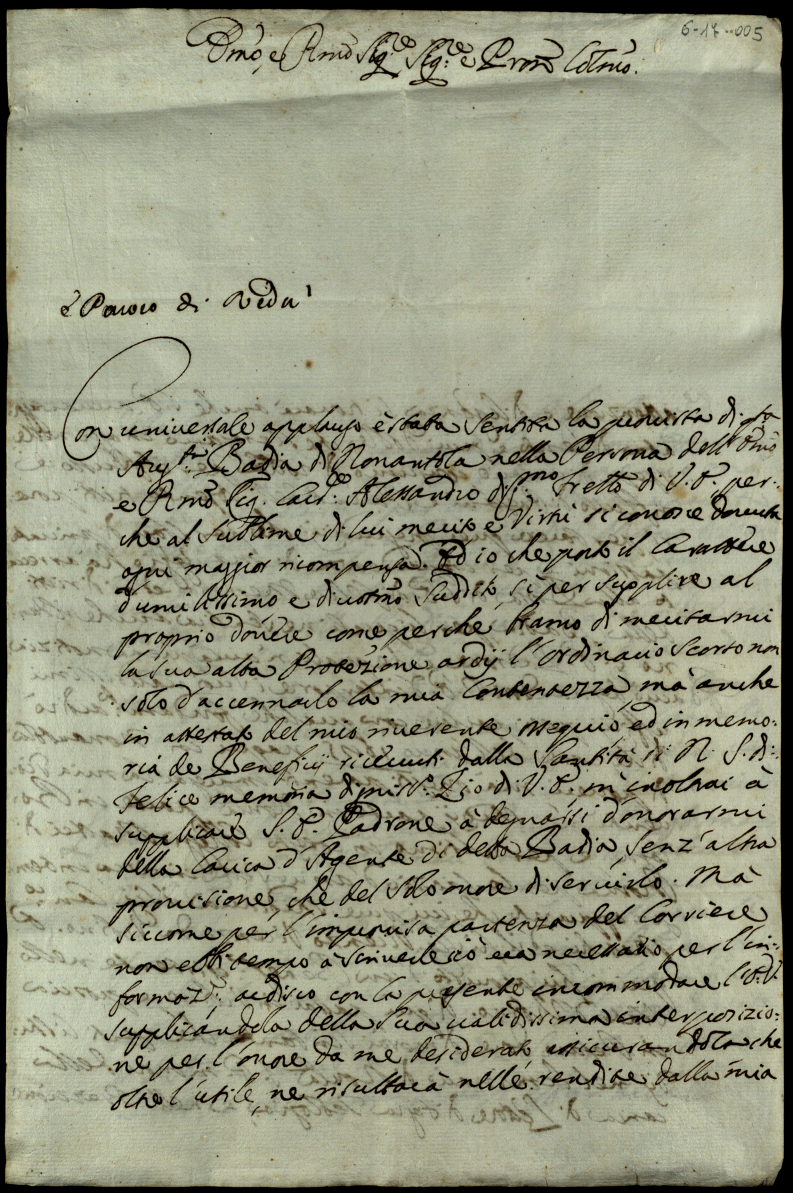 6-17-005
Emo, e Rmo Sigre Sigre e Pron Colmo.
è Paroco di Redù
Con universale applauso è stata sentita la provista di qta
Insg.e Badia di Nonantola nella Persona dell' Emo
e Rmo Sig. Card.e Alessandro dig.mo Frello di V.E., per-
che al sublime di lui merito e Virtù si conosce dovuta
ogni maggior ricompensa. Ed io che porto il Carattere
d'umilissimo e divotmo Suddito, sì per supplire al
proprio dovere come perche bramo di meritarmi
la sua alta Protezione ardij l'Ordinario scorso non
solo d'accennarlo la mia Contentezza, mà anche
in attestato del mio riverente ossequio, ed in memo-
ria de Beneficij ricevuti dalla Santità di N. S. di
felice memoria digniss.o Zio di V.E. m'inoltrai à
supplicare S. E. Padrone à degnarsi d'onorarmi
della Carica d'Agente di detta Badia, senz' altra
provisione, che del solo onore di servirlo. Mà
siccome per l'improvisa partenza del Corriere
non ebbi tempo à scrivere ciò era necessario per l'in-
formaz.e; ardisco con la presente incommodare l'E.V.
supplicandola della sua validissima interposizio-
ne per l'onore da me desiderato assicurandola che
oltre l'utile, ne risultarà nelle rendite dalla mia